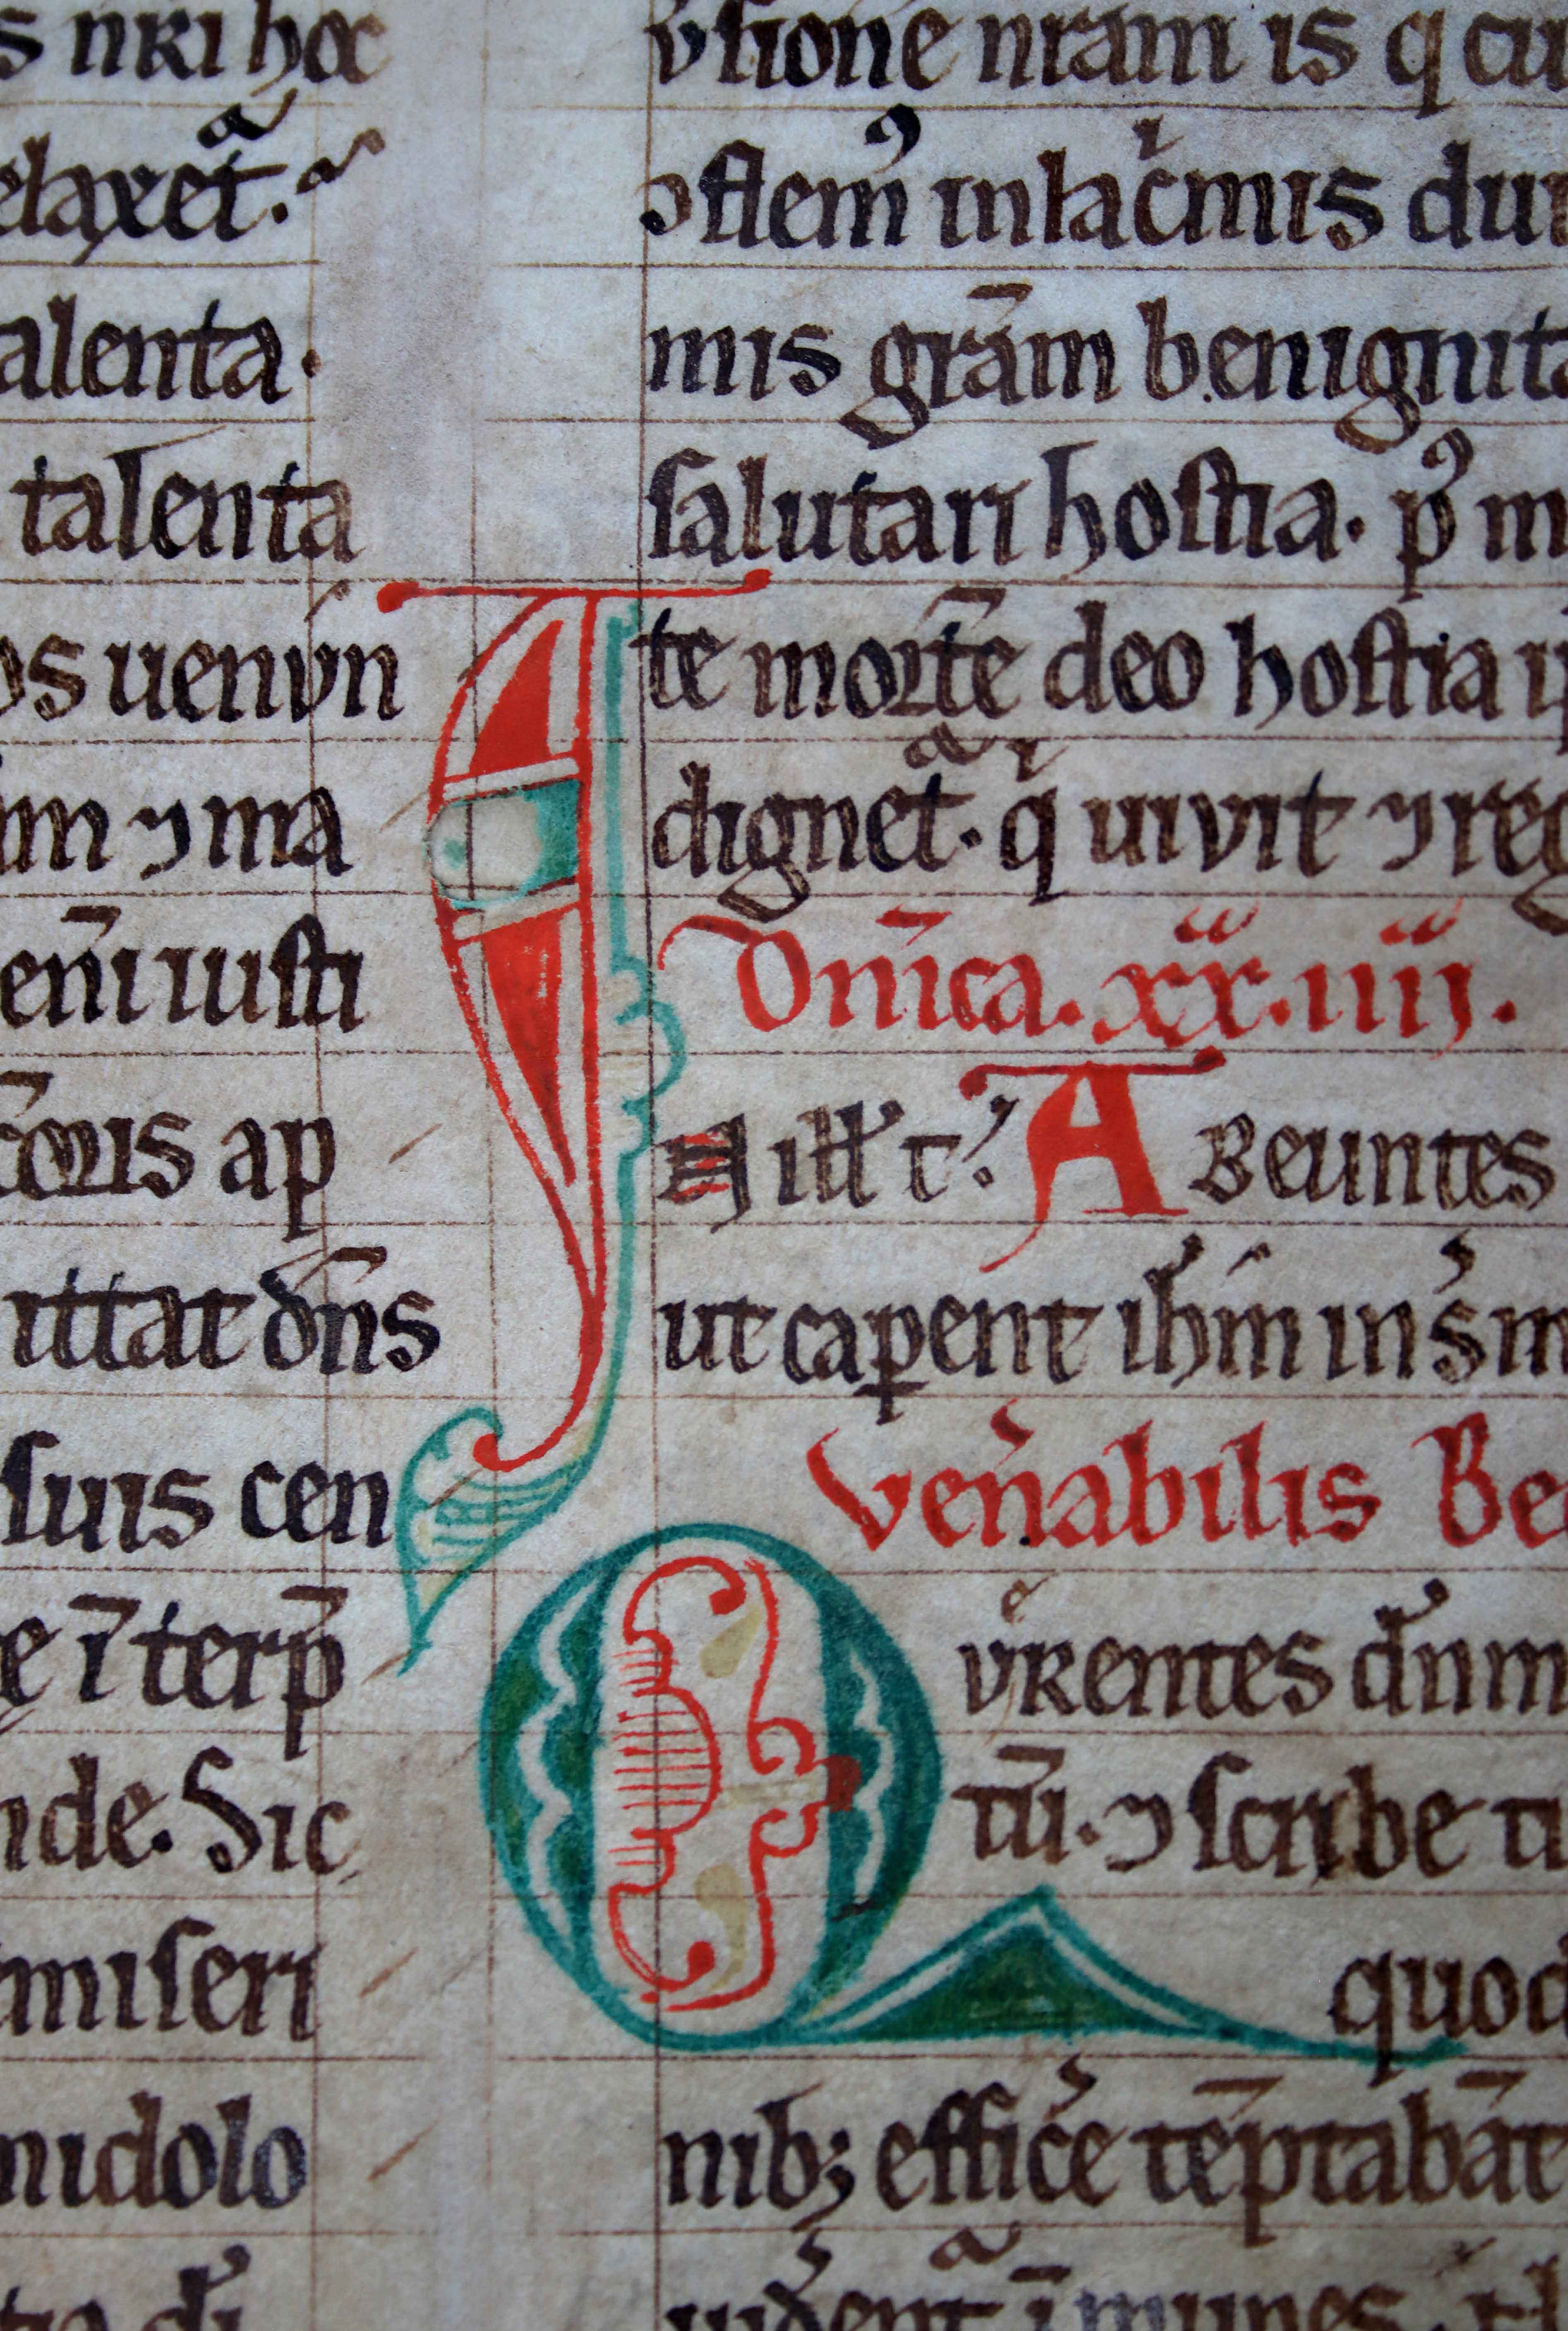 s nr̄i hoc
elaxet̃.
alenta.
talenta
os uenun
m ⁊ ma
eni iusti
cōris ap
ittat dn̄s
suis cen
e īterp̄
nde. Sic
miseri
nidolo
v̓sione nram is q cu
ꝯstem᷒ in lac̓mis dum
mis grām benignita
salutari hostia. p᷒ m
te mortē deo hostia
dignet̃. q̓ uivit ⁊ reg
Dn̄ica. xx. iiij.
In ill̓ t̓. Abeuntes
ut caꝑent ih̄m in s̓m
Ven̓abilis Be
Qvͤrentes dn̄m
tū. ⁊ scribe
quod
nib; effic̓e tēptabāt
uid̓ent̃ īmunes.